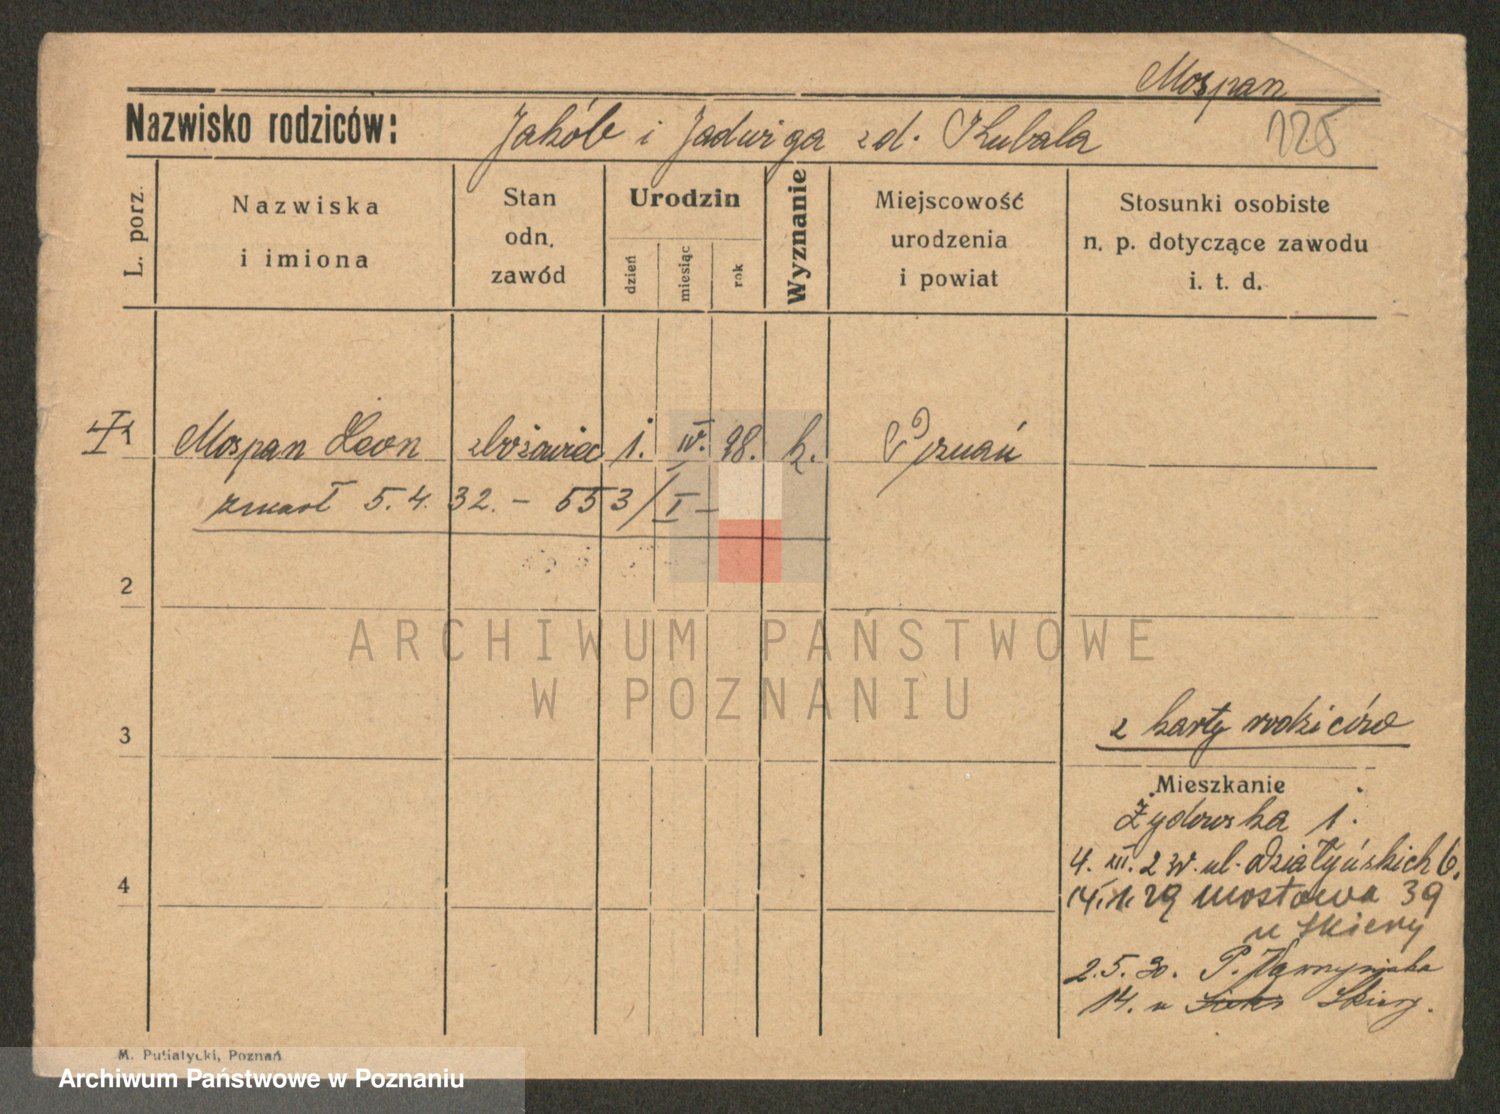 Mospan
125
Nazwisko rodziców: Jakób i Jadwiga zd. Kubala
L. porz.
Nazwiska
i imiona
Stan
odn.
zawód
Urodzin
dzień
miesiąc
rok
Wyznanie
Miejscowość
urodzenia
i powiat
Stosunki osobiste
n. p. dotyczące zawodu
i. t. d.
Mospan Leon zbożowiec 1. IV. 98. k. Poznań
zmarł 5.4.32. - 553/I -
2
3
4
z karty rodziców
Mieszkanie
Żydowska 1.
4. XII. 2 ul. Działyńskich 6.
29 Mostowa 39
u Skiery
2.5.30. P.
14. u Skiery.
ARCHIWUM PAŃSTWOWE
W POZNANIU
M. Putiatycki, Poznań
Archiwum Państwowe w Poznaniu